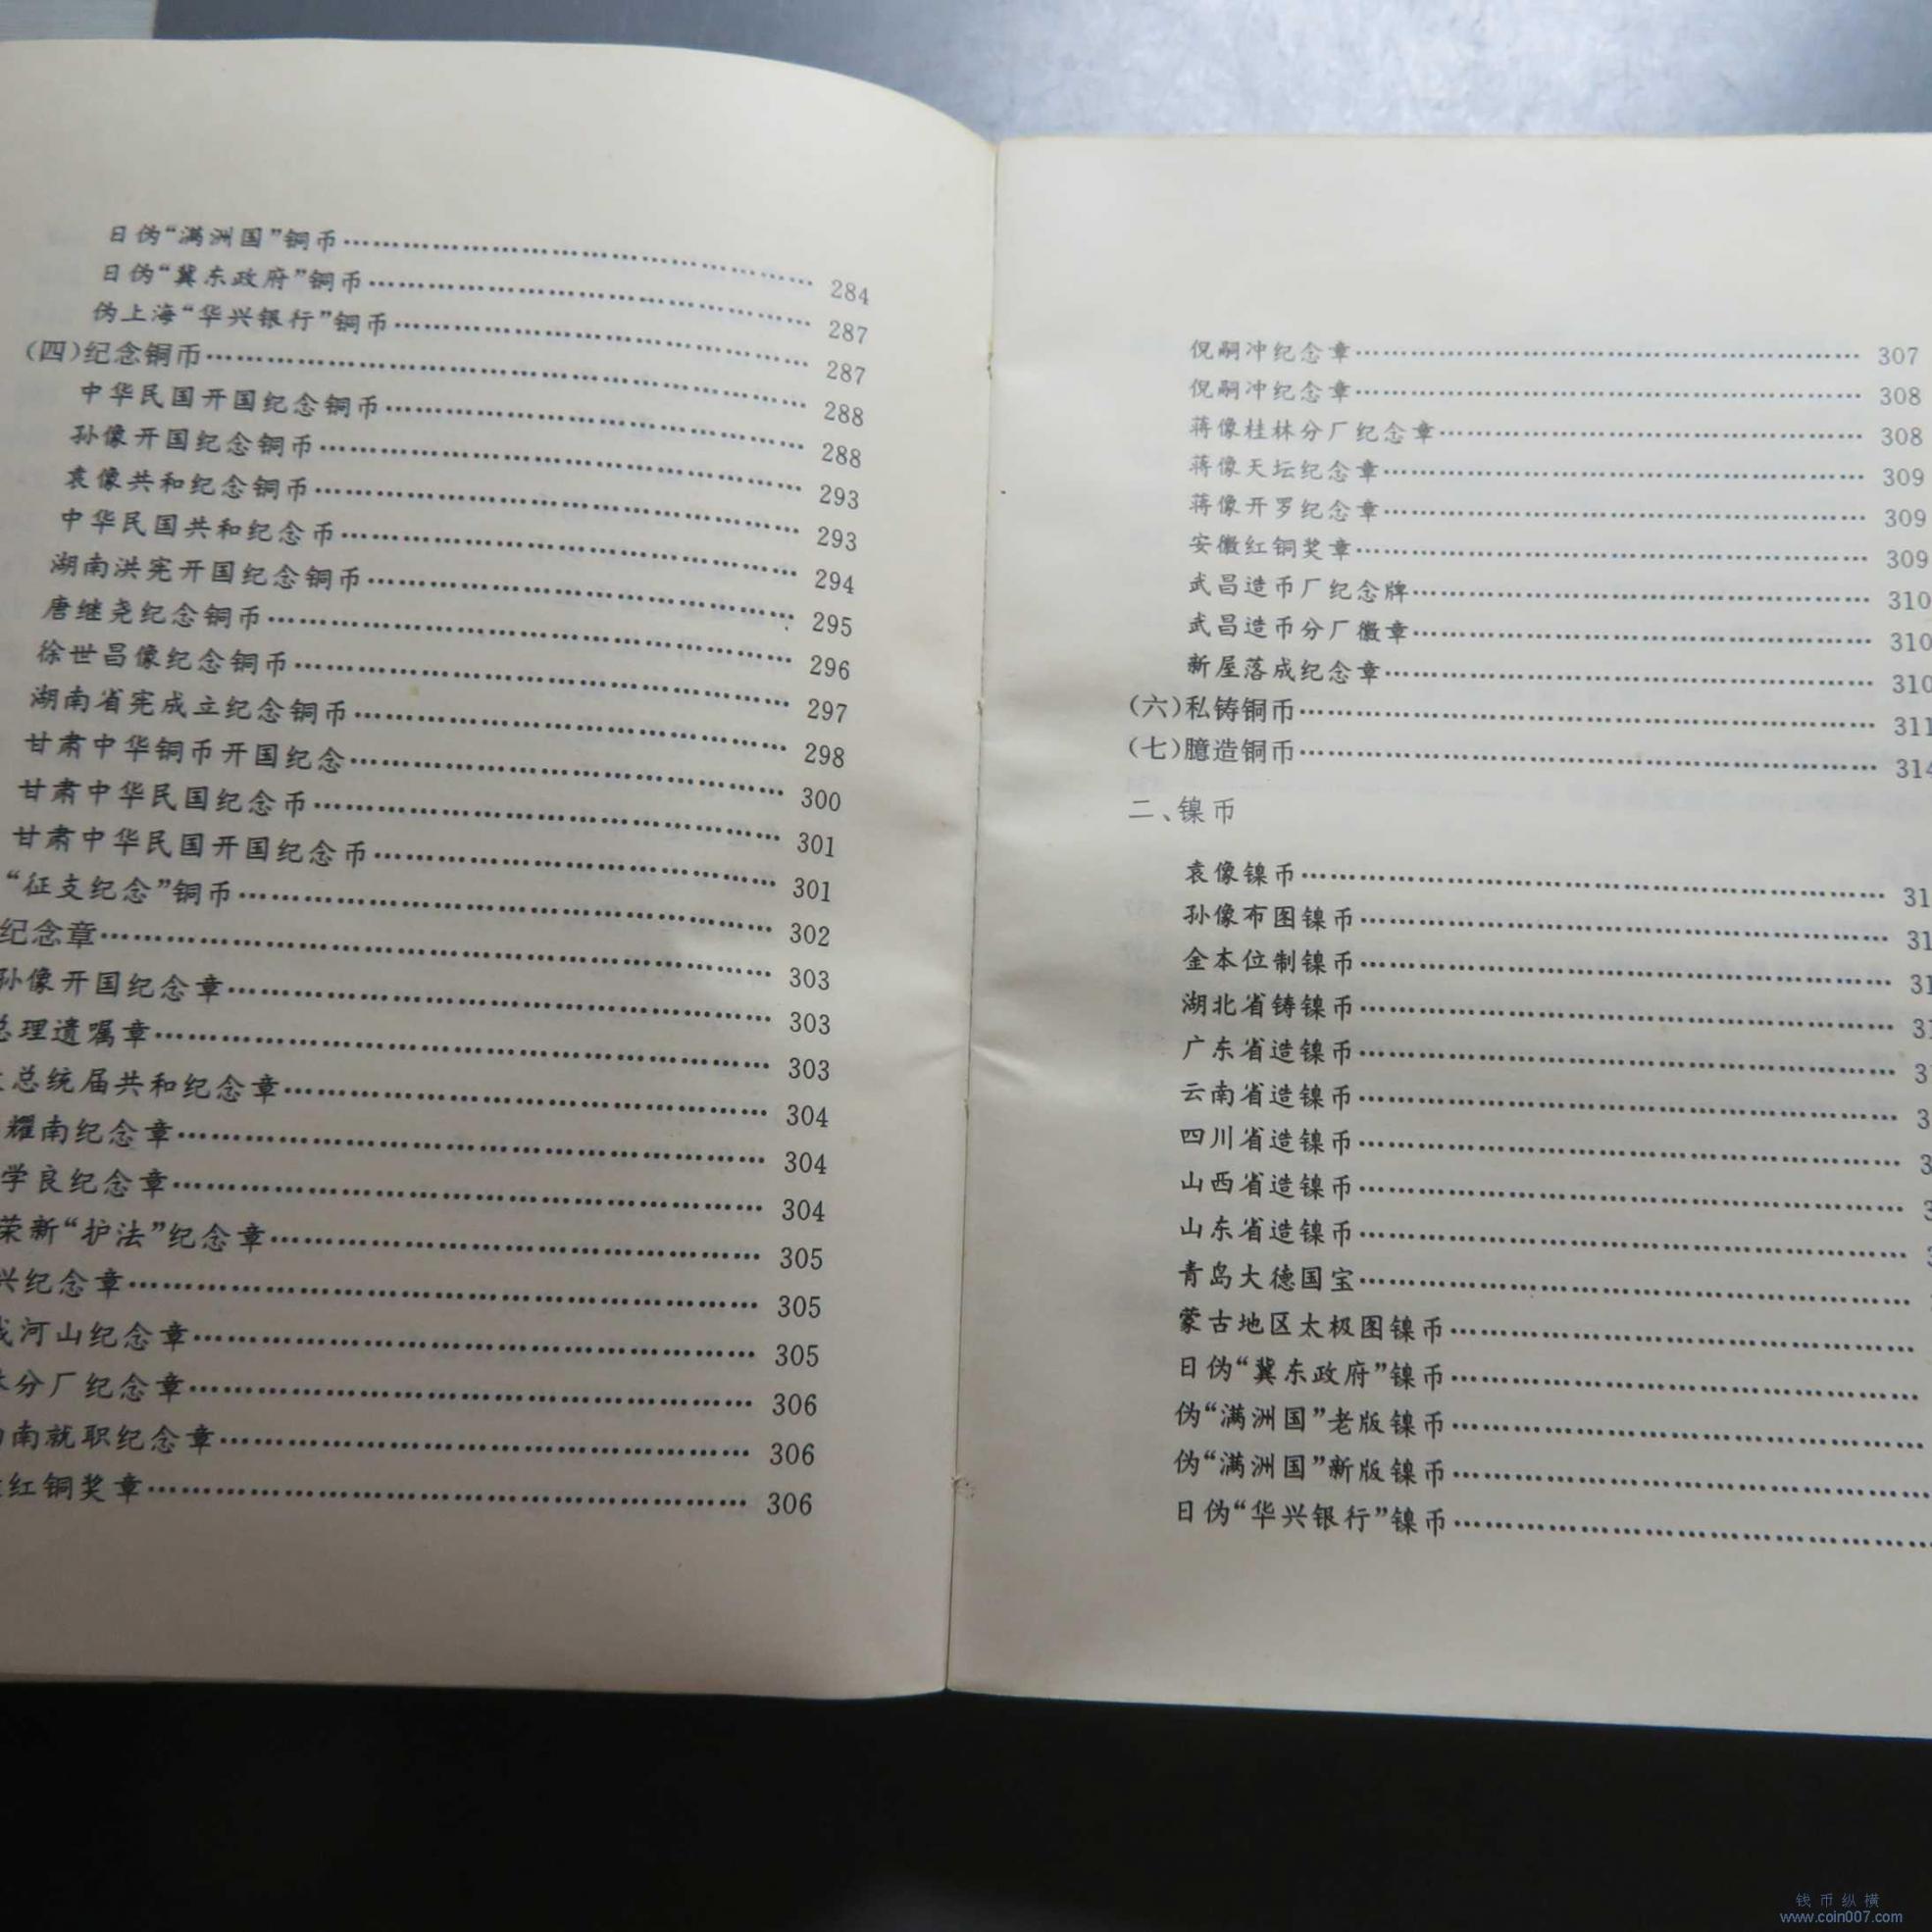 日伪“满洲国”铜币……284
日伪“冀东政府”铜币……287
伪上海“华兴银行”铜币……287
(四)纪念铜币……288
中华民国开国纪念铜币……288
孙像开国纪念铜币……293
袁像共和纪念铜币……293
中华民国共和纪念币……294
湖南洪宪开国纪念铜币……295
唐继尧纪念铜币……296
徐世昌像纪念铜币……297
湖南省宪成立纪念铜币……298
甘肃中华铜币开国纪念……300
甘肃中华民国纪念币……301
甘肃中华民国开国纪念币……301
“征支纪念”铜币……302
纪念章……303
孙像开国纪念章……303
总理遗嘱章……303
总统届共和纪念章……304
耀南纪念章……304
学良纪念章……304
荣新“护法”纪念章……305
兴纪念章……305
河山纪念章……305
分厂纪念章……306
南就职纪念章……306
红铜奖章……306
倪嗣冲纪念章……307
倪嗣冲纪念章……308
蒋像桂林分厂纪念章……308
蒋像天坛纪念章……309
蒋像开罗纪念章……309
安徽红铜奖章……309
武昌造币厂纪念牌……310
武昌造币分厂徽章……310
新屋落成纪念章……310
(六)私铸铜币……311
(七)臆造铜币……314
二、镍币
袁像镍币……31
孙像布图镍币……31
金本位制镍币……31
湖北省铸镍币……31
广东省造镍币……3
云南省造镍币……3
四川省造镍币……3
山西省造镍币……3
山东省造镍币……
青岛大德国宝……
蒙古地区太极图镍币……
日伪“冀东政府”镍币……
伪“满洲国”老版镍币……
伪“满洲国”新版镍币……
日伪“华兴银行”镍币……
钱币纵横
www.coin007.com